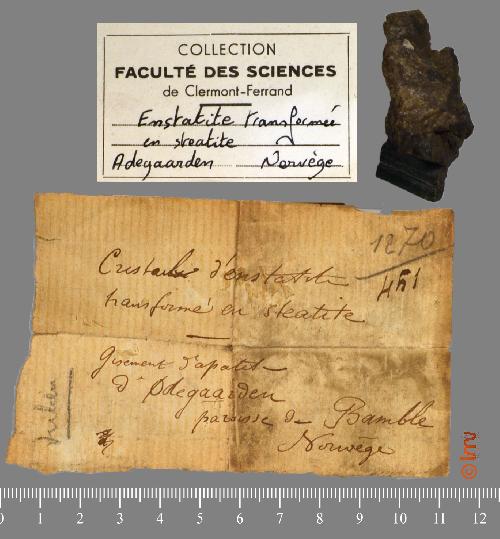 COLLECTION
FACULTÉ DES SCIENCES
de Clermont-Ferrand
Enstatite transformée
en steatite
Adegaarden Norvège
1270
451
Cristaux d'enstatite
transformé en steatite
Gisement d'apatite
d'Ødegaarden
paroisse de Bamble
Norvège
© lmv
0 1 2 3 4 5 6 7 8 9 10 11 12